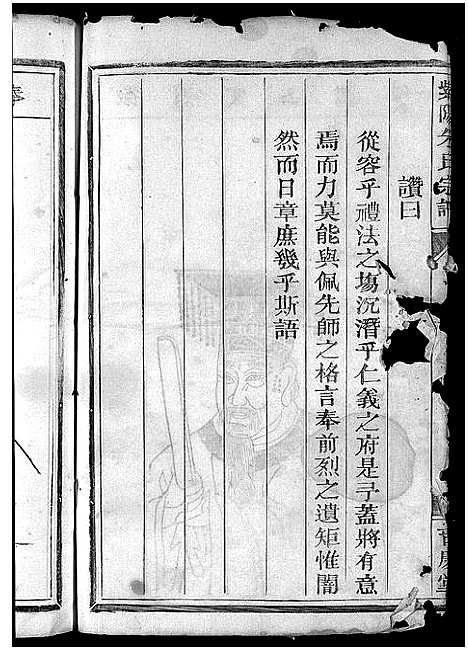 紫陽朱氏宗譜
讚曰
從容乎禮法之塲沉潛乎仁義之府是予蓋將有意
焉而力莫能與佩先師之格言奉前烈之遺矩惟闇
然而日章庶幾乎斯語